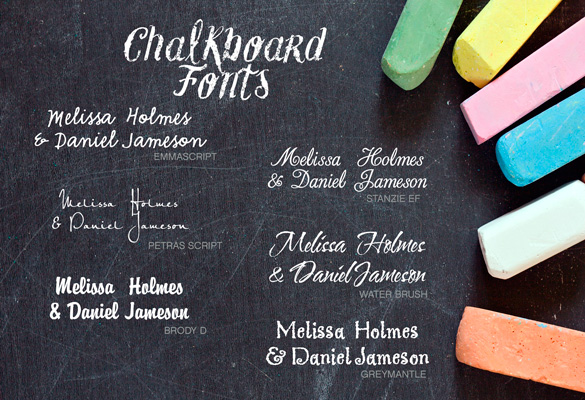 Chalkboard
Fonts
Melissa Holmes
& Daniel Jameson
EMMASCRIPT
Melissa Holmes
& Daniel Jameson
STANZIE EF
Melissa Holmes
& Daniel Jameson
PETRAS SCRIPT
Melissa Holmes
& Daniel Jameson
WATER BRUSH
Melissa Holmes
& Daniel Jameson
BRODY D
Melissa Holmes
& Daniel Jameson
GREYMANTLE